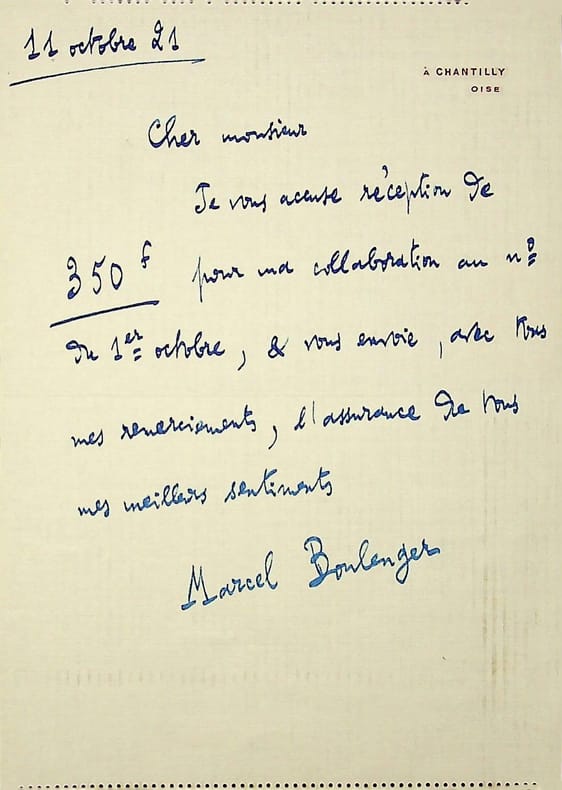 11 octobre 21
À CHANTILLY
OISE
Cher monsieur
Je vous accuse réception de
350 f pour ma collaboration au nº
du 1er octobre, & vous envoie, avec tous
mes remerciements, l'assurance de tous
mes meilleurs sentiments
Marcel Boulenger